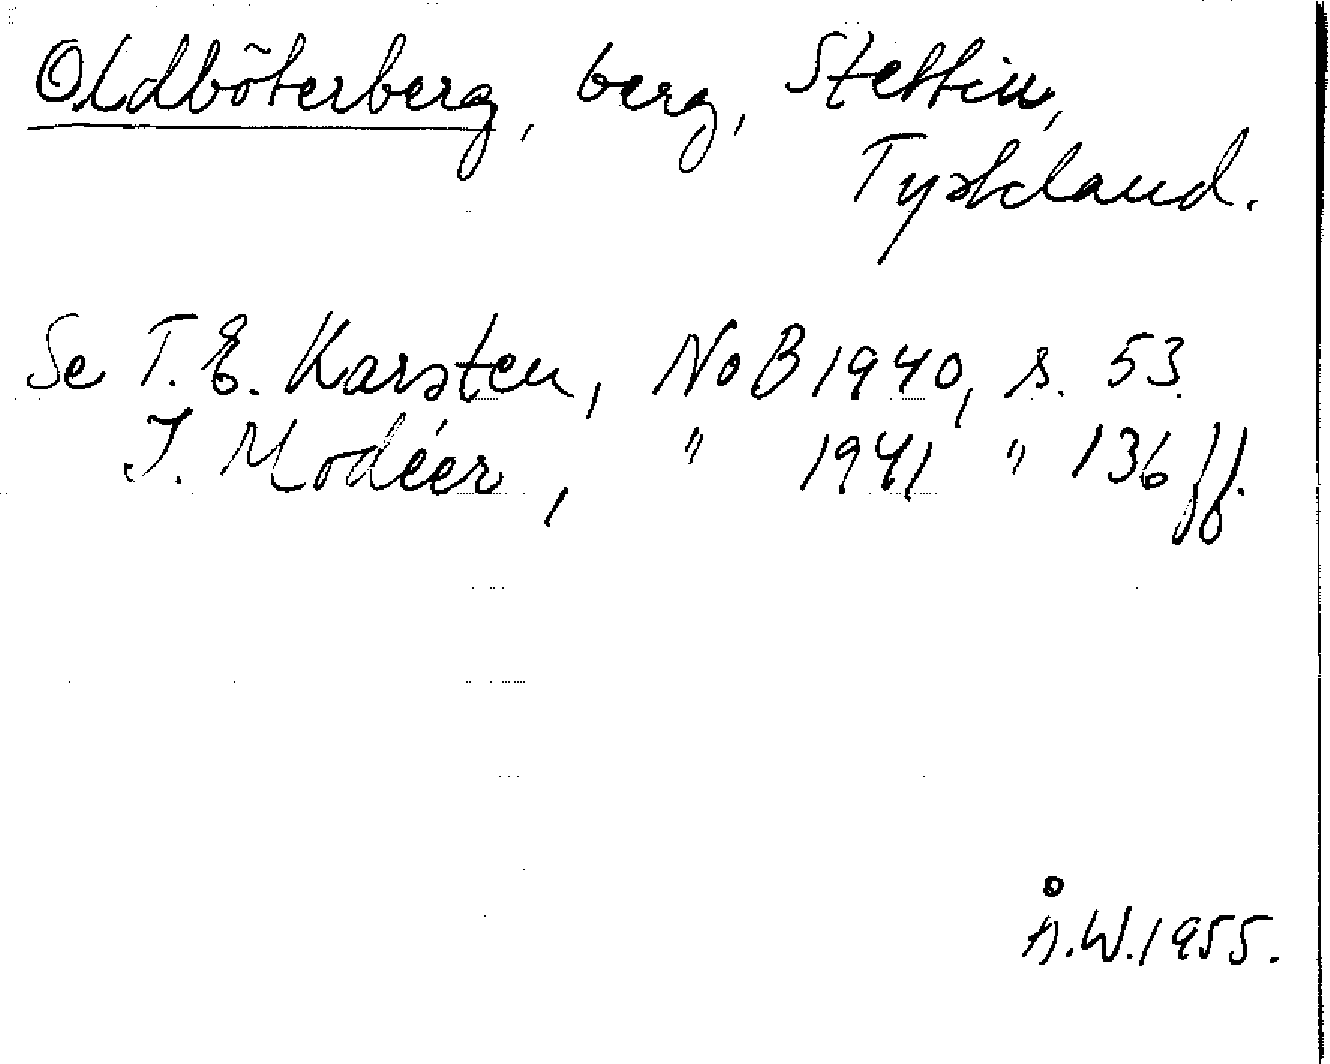 Oldböterberg, berg, Stettin,
Tyskland.
Se T. E. Karsten, NoB 1940, s. 53.
I. Modéer, " 1941 " 136 ff.
Å.W. 1955.